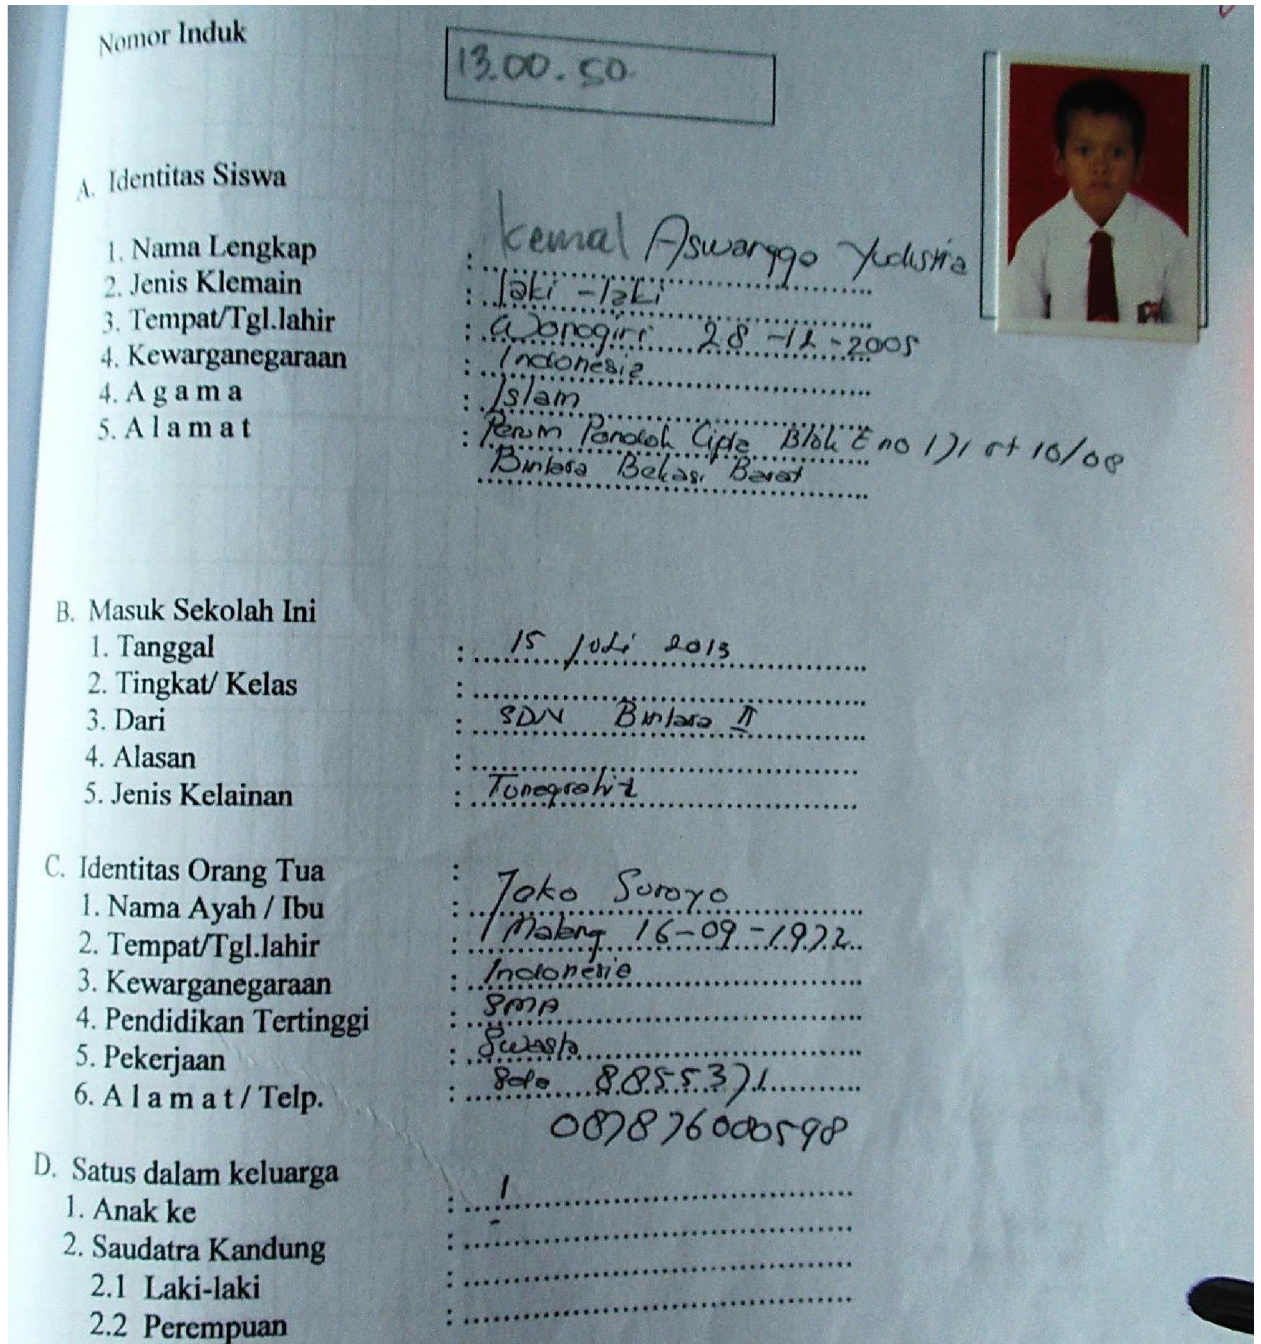 Nomor Induk 13.00.50
A. Identitas Siswa
1. Nama Lengkap : Kemal Aswanggo Yudistia
2. Jenis Klemain : laki-laki
3. Tempat/Tgl.lahir : Wonogiri 28-12-2005
4. Kewarganegaraan : Indonesia
4. A g a m a : Islam
5. A l a m a t : Perum Pondok Cipta Blok E no 171 rt 10/08
Bintara Bekasi Barat
B. Masuk Sekolah Ini
1. Tanggal : 15 Juli 2013
2. Tingkat/ Kelas :
3. Dari : SDN Bintara II
4. Alasan :
5. Jenis Kelainan : Tunagrahita
C. Identitas Orang Tua :
1. Nama Ayah / Ibu : Joko Suroyo
2. Tempat/Tgl.lahir : Malang 16-09-1972
3. Kewarganegaraan : Indonesia
4. Pendidikan Tertinggi : SMA
5. Pekerjaan : Swasta
6. A l a m a t / Telp. : 8855371
087876000598
D. Satus dalam keluarga
1. Anak ke : 1
2. Saudatra Kandung : -
2.1 Laki-laki :
2.2 Perempuan :